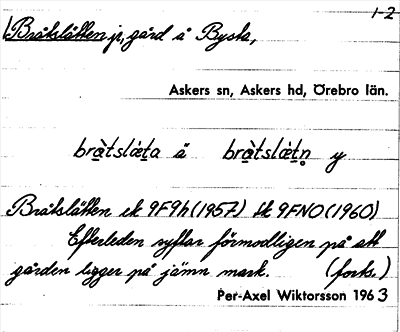 1-2
Bråtslätten jr, gård å Bysta,
Askers sn, Askers hd, Örebro län.
brà̱tslǽṯa å brà̱tslǽ̱ṯṉ̥ y
Bråtslätten ek 9F9h (1957) tk 9FNO (1960)
Efterleden syftar förmodligen på att
gården ligger på jämn mark. (forts.)
Per-Axel Wiktorsson 1963